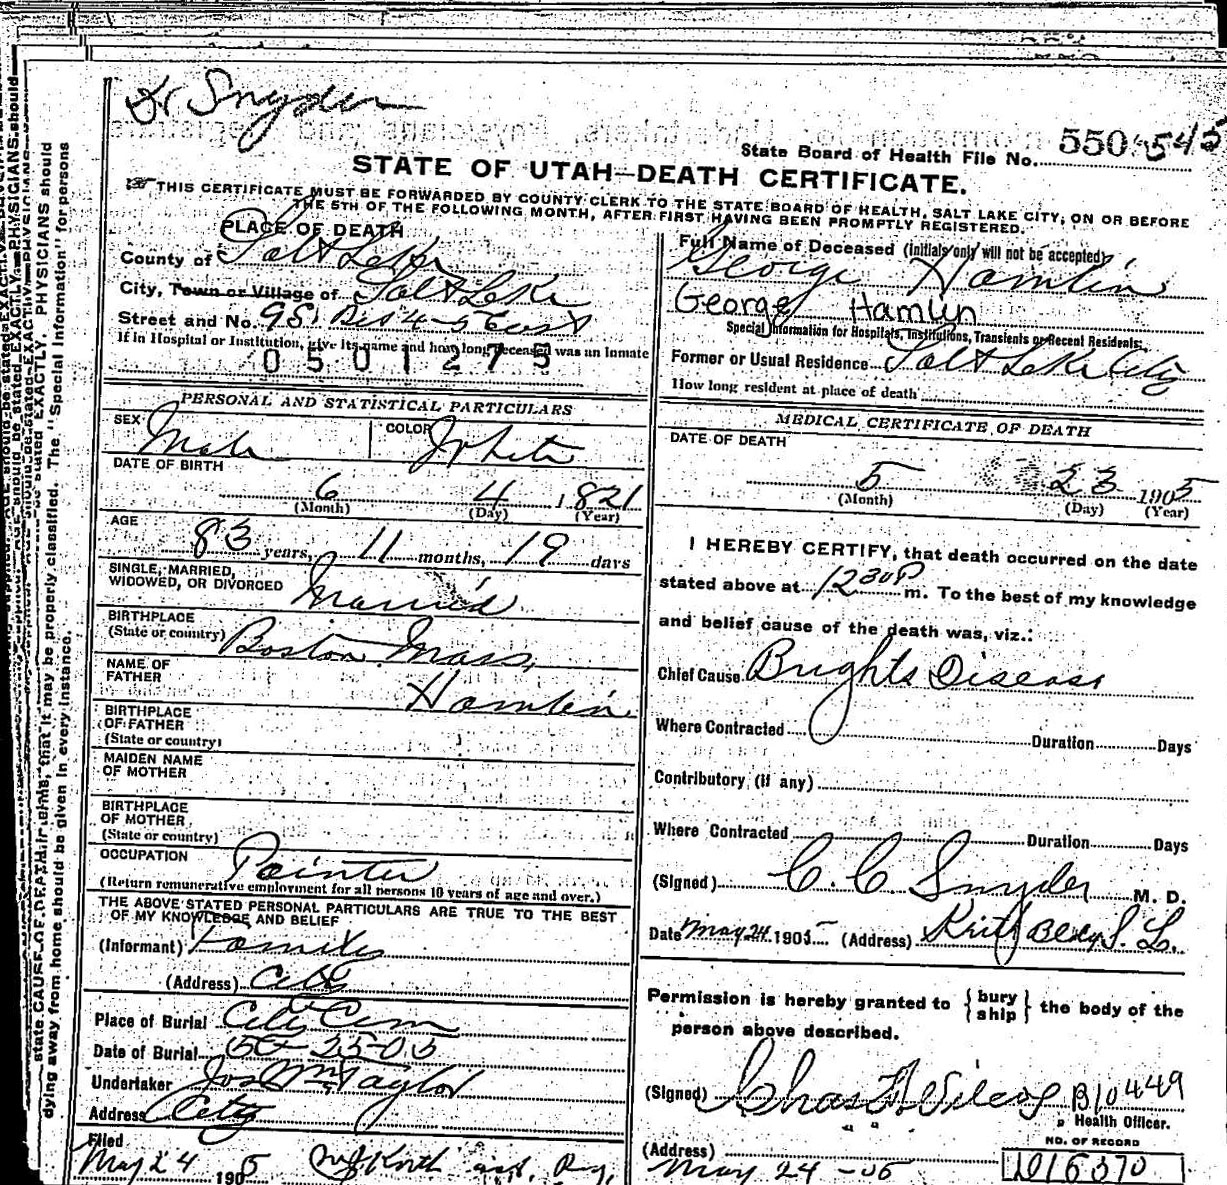 Dr Snyder
State Board of Health File No. 550 545
STATE OF UTAH—DEATH CERTIFICATE.
THIS CERTIFICATE MUST BE FORWARDED BY COUNTY CLERK TO THE STATE BOARD OF HEALTH, SALT LAKE CITY, ON OR BEFORE
THE 5TH OF THE FOLLOWING MONTH, AFTER FIRST HAVING BEEN PROMPTLY REGISTERED.
PLACE OF DEATH
County of Salt Lake
City, Town or Village of Salt Lake
Street and No. 98 Bet 4-5 East
If in Hospital or Institution, give its name and how long deceased was an Inmate
0501275
PERSONAL AND STATISTICAL PARTICULARS
SEX Male COLOR White
DATE OF BIRTH
6 4 1821
(Month) (Day) (Year)
AGE
83 years, 11 months, 19 days
SINGLE, MARRIED,
WIDOWED, OR DIVORCED Married
BIRTHPLACE
(State or country) Boston Mass,
NAME OF
FATHER Hamlin
BIRTHPLACE
OF FATHER
(State or country)
MAIDEN NAME
OF MOTHER
BIRTHPLACE
OF MOTHER
(State or country)
OCCUPATION Painter
(Return remunerative employment for all persons 10 years of age and over.)
THE ABOVE STATED PERSONAL PARTICULARS ARE TRUE TO THE BEST
OF MY KNOWLEDGE AND BELIEF
(Informant) Family
(Address) City
Place of Burial City Cem
Date of Burial 5-25-05
Undertaker Jos Wm Taylor
Address City
Filed
May 24 1905
Full Name of Deceased (initials only will not be accepted)
George Hamlin
George Hamlin
Special Information for Hospitals, Institutions, Transients or Recent Residents:
Former or Usual Residence Salt Lake City
How long resident at place of death
MEDICAL CERTIFICATE OF DEATH
DATE OF DEATH
5 23 1905
(Month) (Day) (Year)
I HEREBY CERTIFY, that death occurred on the date
stated above at 1230P m. To the best of my knowledge
and belief cause of the death was, viz.:
Chief Cause Brights Disease
Where Contracted Duration Days
Contributory (if any)
Where Contracted Duration Days
(Signed) C. C. Snyder M. D.
Date May 24 1905 (Address) S. L.
Permission is hereby granted to {bury ship} the body of the
person above described.
(Signed) Chas F. Wilcox B10449
" " " Health Officer.
(Address)
May 24-05
NO. OF RECORD
1016370
state CAUSE OF DEATH in terms, that it may be properly classified. The "Special Information" for persons
dying away from home should be given in every instance.